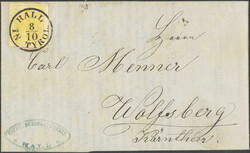 IN HALL
8/10
TYROL.
Herrn
Carl Menner
Wolfsberg
Kärnthen.
HALL